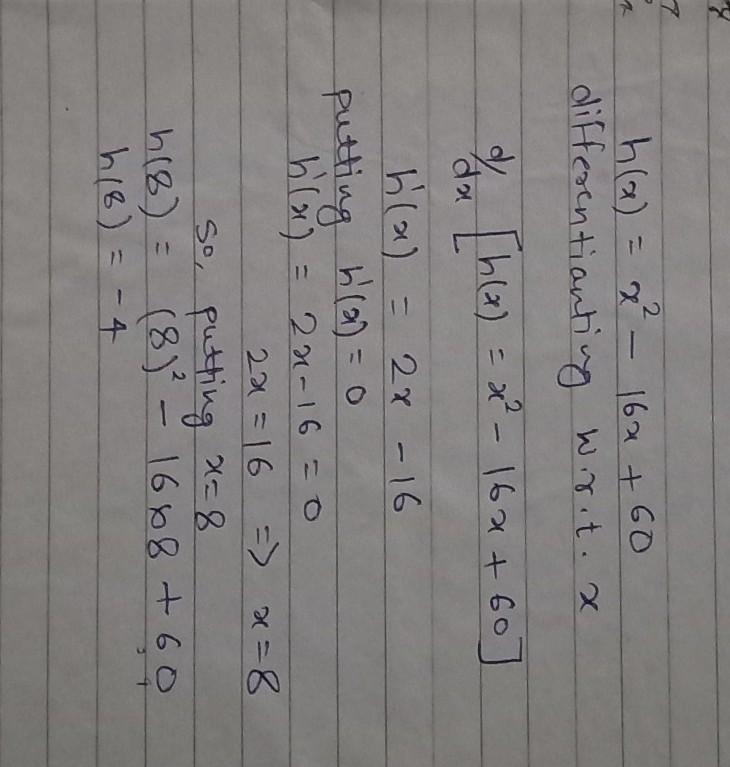 h(x) = x² − 16x + 60
differentianting w.r.t. x
d/dx [h(x) = x² − 16x + 60]
h'(x) = 2x − 16
putting h'(x) = 0
h'(x) = 2x − 16 = 0
2x = 16 => x = 8
So, putting x = 8
h(8) = (8)² − 16×8 + 60
h(8) = −4